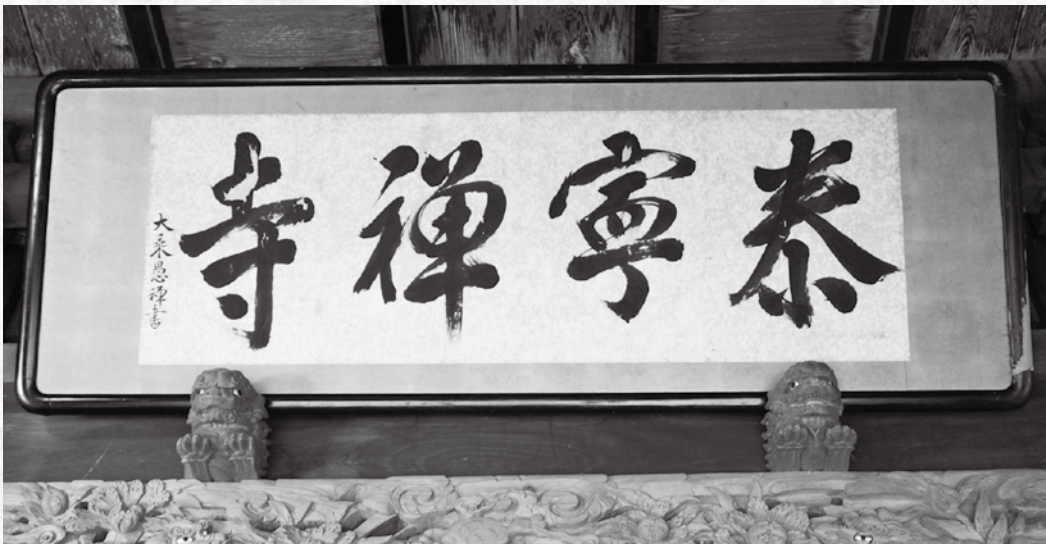 泰寧禅寺
大乗愚禅書